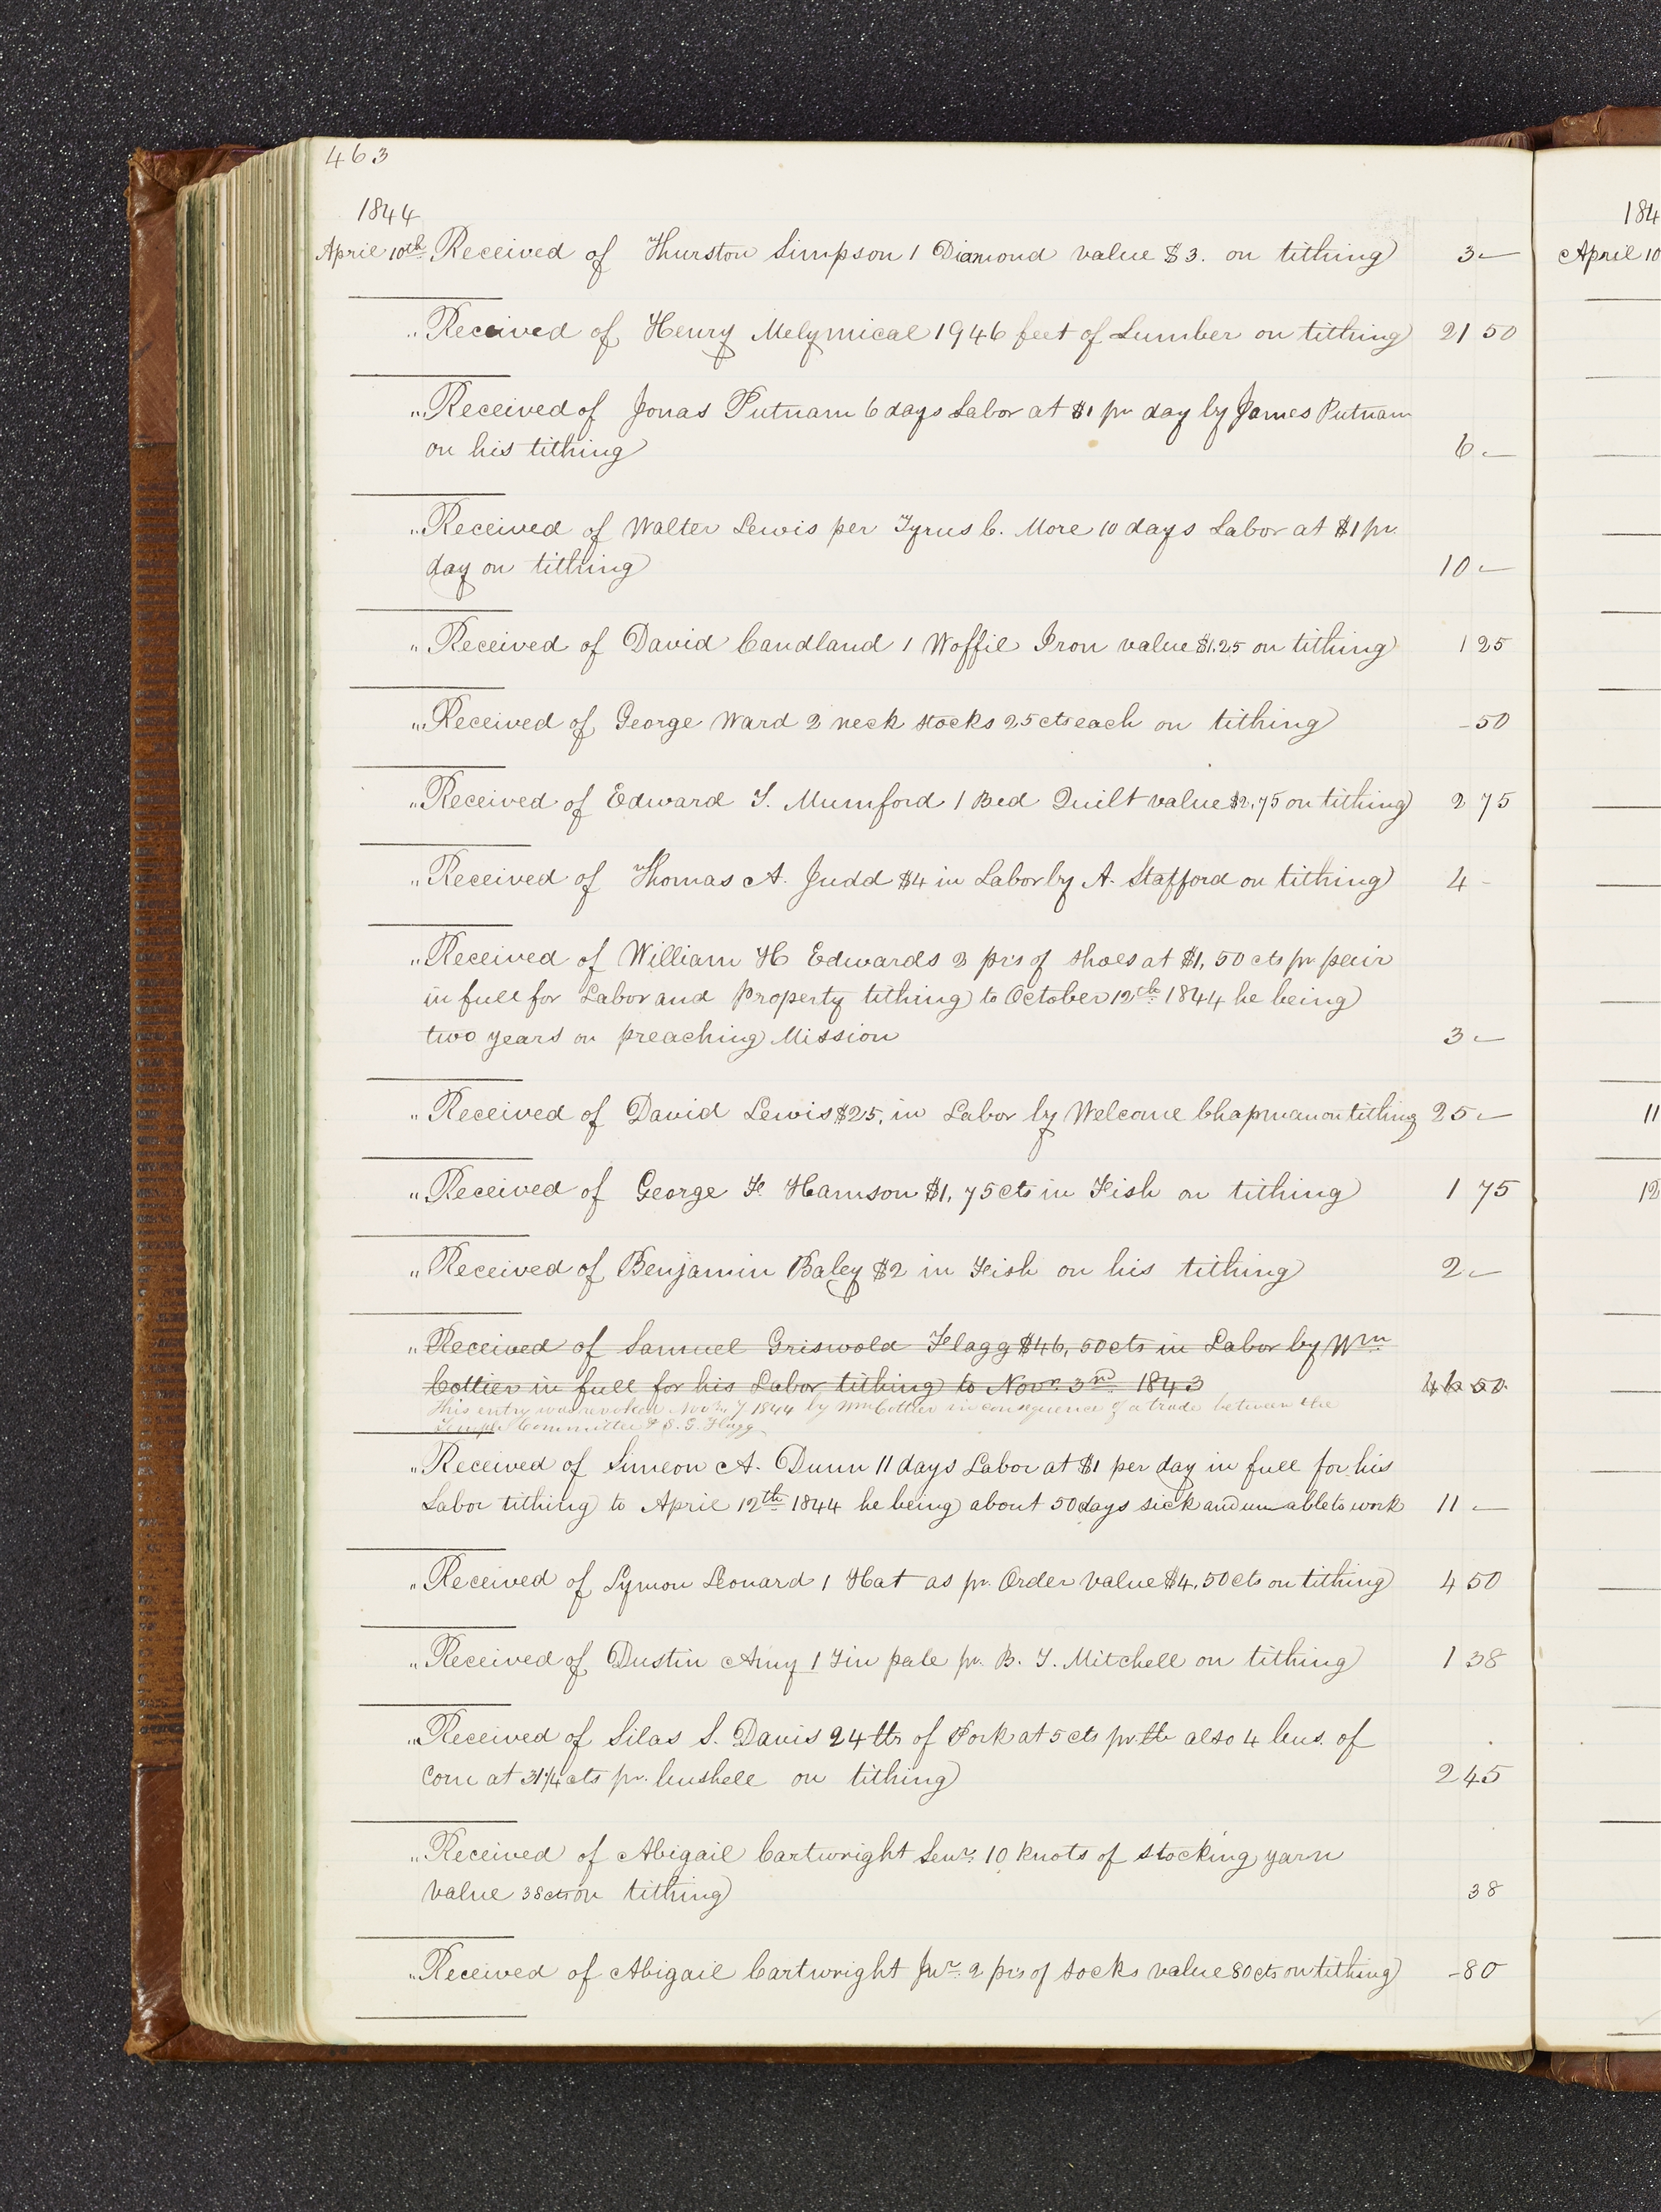 463
1844
April 10th Received of Thurston Simpson 1 Diamond value $3. on tithing 3 —
" Received of Henry Melymical 1946 feet of Lumber on tithing 21 50
" Received of Jonas Putnam 6 days Labor at $1 pr day by James Putnam
on his tithing 6 —
" Received of Walter Lewis per Tyrus C. More 10 days Labor at $1 pr.
day on tithing 10 —
" Received of David Candland 1 Woffil Iron value $1.25 on tithing 1 25
" Received of George Ward 2 neck stocks 25 cts each on tithing - 50
" Received of Edward T. Mumford 1 Bed Quilt value $2,75 on tithing 2 75
" Received of Thomas A. Judd $4 in Labor by A. Stafford on tithing 4 -
" Received of William H Edwards 2 prs of shoes at $1, 50 cts pr pair
in full for Labor and Property tithing to October 12th 1844 he being
two years on preaching Mission 3 —
" Received of David Lewis $25, in Labor by Welcome Chapman on tithing 25 —
" Received of George F. Hamson $1, 75 cts in Fish on tithing 1 75
" Received of Benjamin Baley $2 in Fish on his tithing 2 —
" Received of Samuel Griswold Flagg $46, 50 cts in Labor by Wm
Cottier in full for his Labor tithing to Novr. 3rd 1843 46 50
This entry was revoked Nov 7 1844 by Wm Cottier in consequence of a trade between the
Temple Committee & S. G. Flagg
" Received of Simeon A. Dunn 11 days Labor at $1 per day in full for his
Labor tithing to April 12th 1844 he being about 50 days sick and unable to work 11 —
" Received of Lymon Leonard 1 Hat as pr. Order value $4, 50 cts on tithing 4 50
" Received of Dustin Amy 1 Tin pale pr. B. T. Mitchell on tithing 1 38
" Received of Silas S. Davis 24 lbs of Pork at 5 cts pr. lb also 4 bus. of
Corn at 31 1/4 cts pr. bushell on tithing 2 45
" Received of Abigail Cartwright Senr. 10 knots of stocking yarn
value 38 cts on tithing 38
" Received of Abigail Cartwright Junr. 2 prs of socks value 80 cts on tithing - 80
184
April 10
11
12